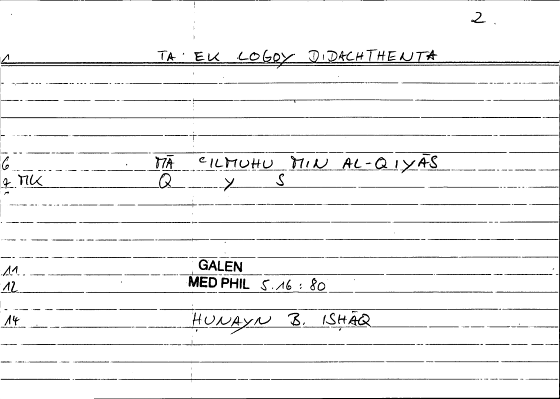 2
1 TA EK LOGOY DIDACHTHENTA
6 MĀ ʿILMUHU MIN AL-QIYĀS
MK Q Y S
11 GALEN
12 MED PHIL 5.16 : 80
14 ḤUNAYN B. ISḤĀQ